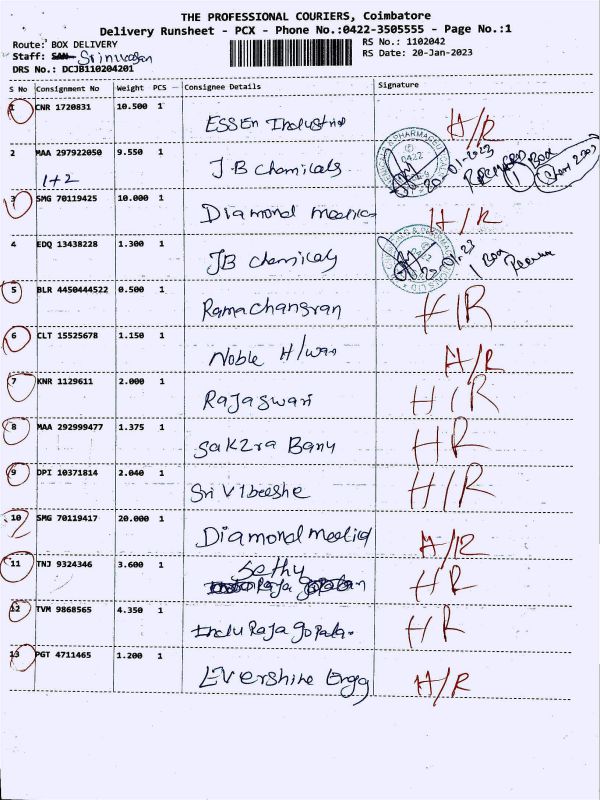 THE PROFESSIONAL COURIERS, Coimbatore
Delivery Runsheet - PCX - Phone No.:0422-3505555 - Page No.:1
Route: BOX DELIVERY
RS No.: 1102042
Staff: SAN Srinivasan
RS Date: 20-Jan-2023
DRS No.: DCJB110204201
S No Consignment No Weight PCS Consignee Details Signature
1 CNR 1720831 10.500 1 ESSEn Industries H/R
2 MAA 297922050 9.550 1 JB Chemicals 20-01-2023 Box
1+2
3 SMG 70119425 10.000 1 Diamond medica H/R
4 EDQ 13438228 1.300 1 JB Chemicals 20-01-23 1 Box
5 BLR 4450444522 0.500 1 Ramachandran H/R
6 CLT 15525678 1.150 1 Noble H/was H/R
7 KNR 1129611 2.000 1 Rajaswari H/R
8 MAA 292999477 1.375 1 Sakzra Banu HR
9 DPI 10371814 2.040 1 Sri Vibeeshe H/R
10 SMG 70119417 20.000 1 Diamond medica H/R
11 TNJ 9324346 3.600 1 Sethu HR
12 TVM 9868565 4.350 1 InduRaja Gopala. HR
13 PGT 4711465 1.200 1 Evershine Engg H/R